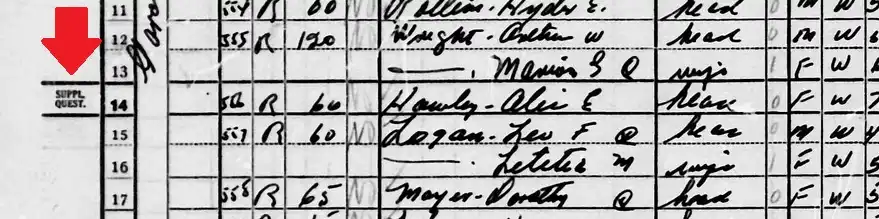 11 554 R 60 NO Hyde E. head M W 5
12 555 R 120 Wright - Arthur W head 0 M W 6
13 ———. Marion G Q wife 1 F W 6
SUPPL. QUEST. 14 556 R 60 Hawley - Alice E head 0 F W 7
15 557 R 60 NO Logan - Leo F Q head 0 M W 4
16 ———. Letetia M wife 1 F W 5
17 558 R 65 NO Mayer - Dorothy Q head 0 F W 5